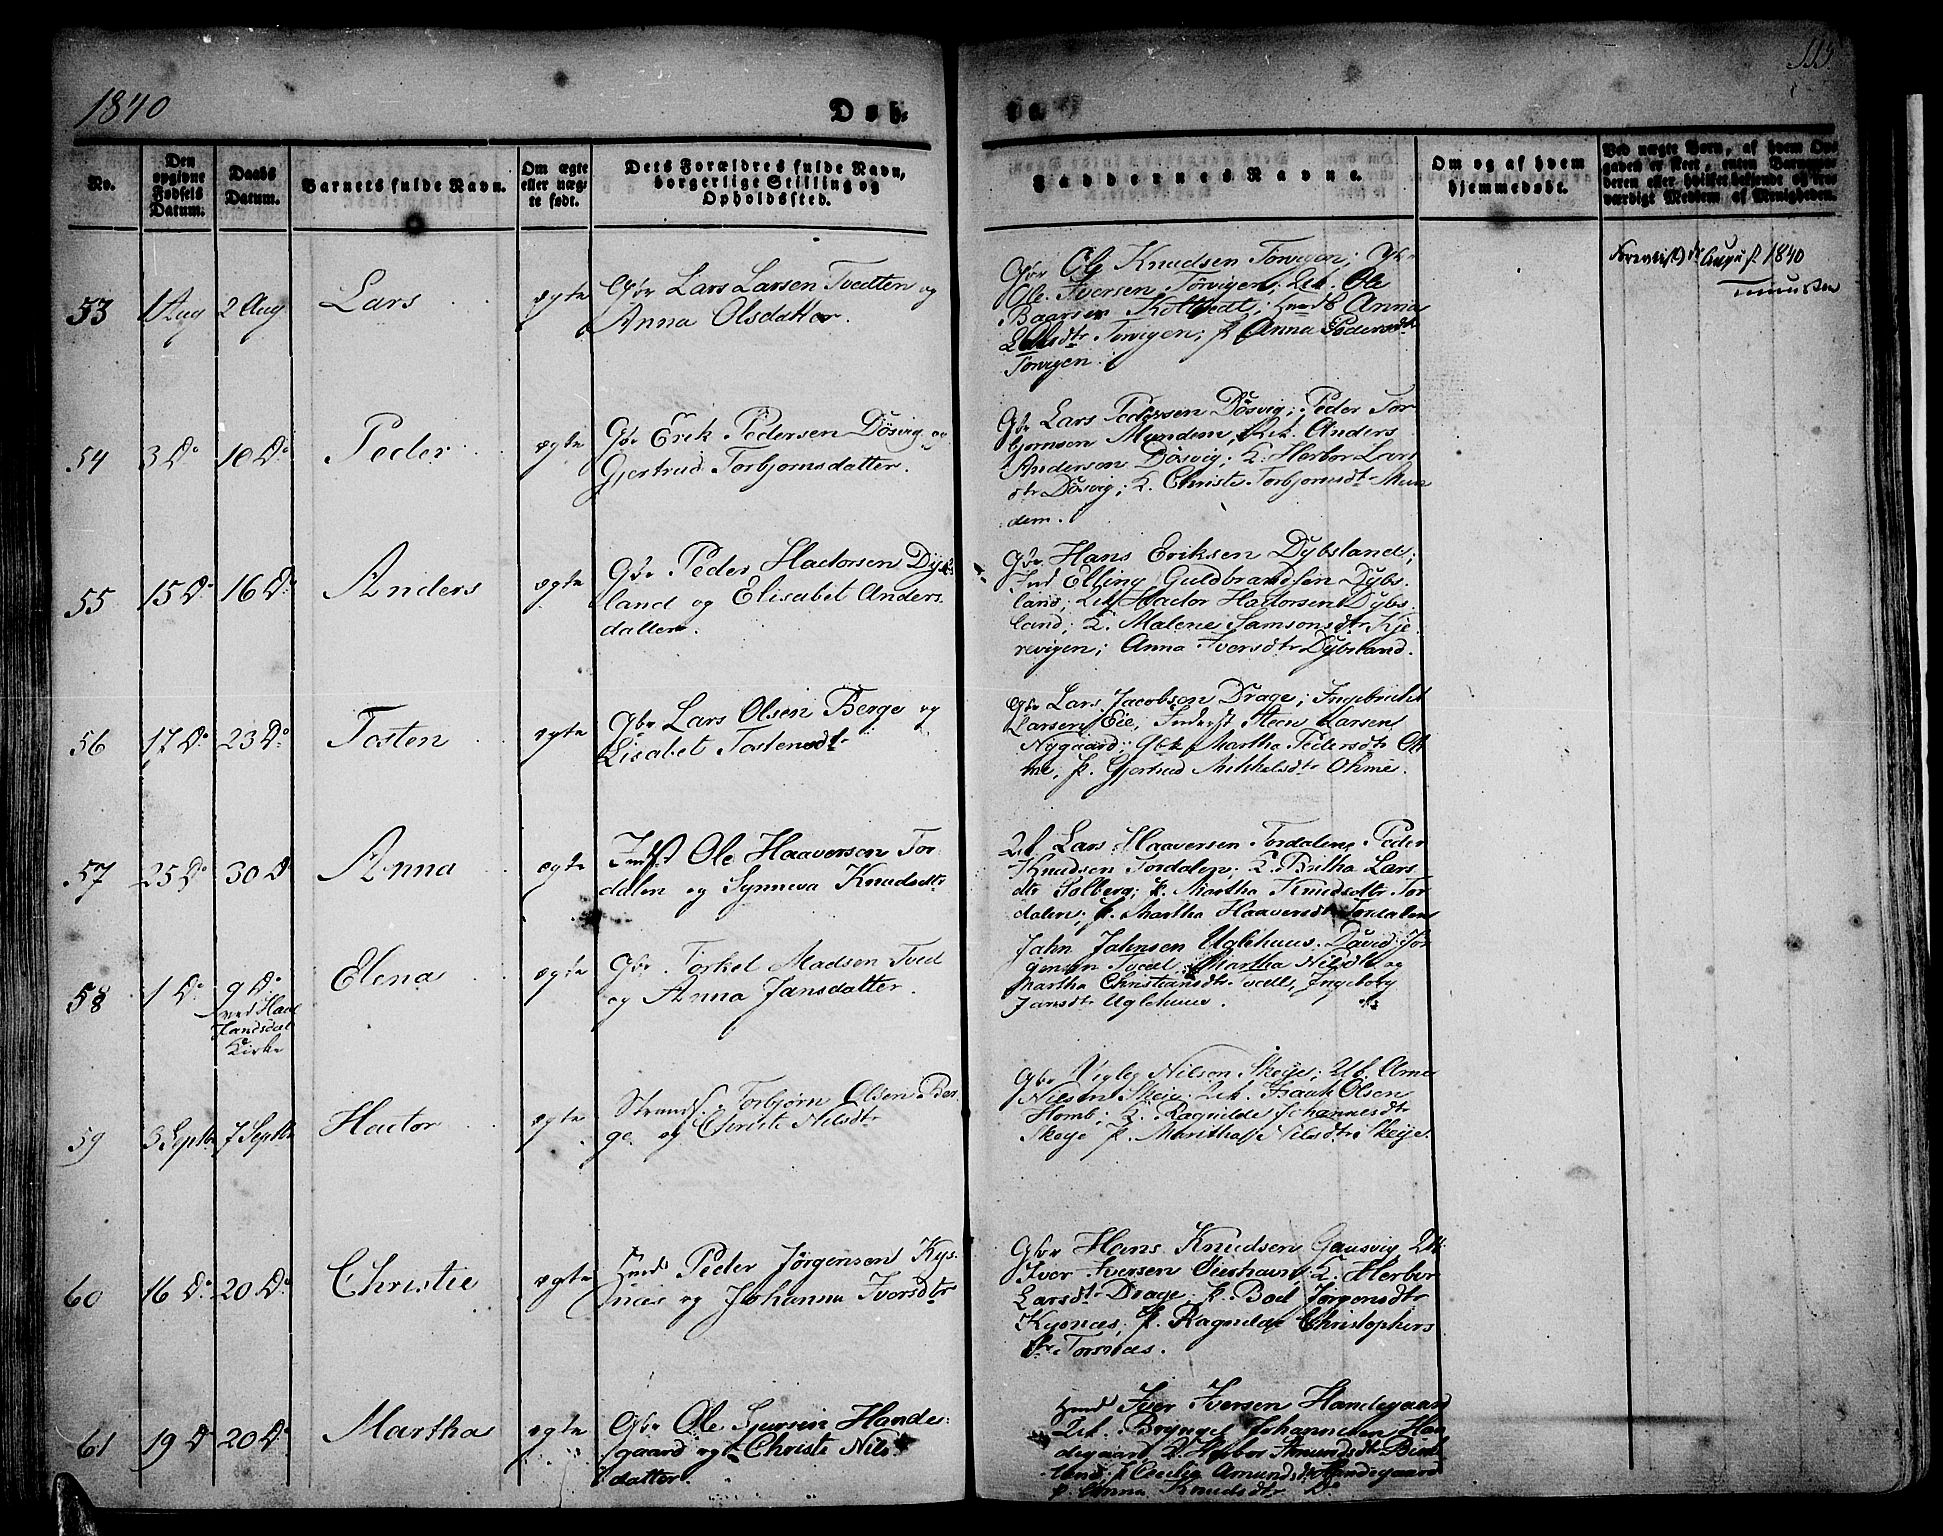 1840
Døb.
te.
115
No.
Den opgivne Fødsels Datum.
Daabs Datum.
Barnets fulde Navn.
Om ægte eller uægte født.
Dets Forældres fulde Navn, borgerlige Stilling og Opholdssted.
Faddernes Navne.
Om og af hvem hjemmedøbt.
Ved uægte Børn, af hvem Opgaven er skeet, enten Barnemoderen eller hvilket bosiddende og troværdigt Medlem af Menigheden.
53
1 Aug
2 Aug
Lars
ægte
Gbr Lars Larsen Tvedten og
Anna Olsdatter.
Gbr Ole Knudsen Torvigen;
Ole Iversen Torvigen; Ole
Baarsen Koltvedt; Anna
Torvigen; p. Anna Pedersdtr
Torvigen.
August 1840
54
3 Do
10 Do
Peder
ægte
Gbr Erik Pedersen Døsvig og
Gjertrud Torbjørnsdatter.
Gbr Lars Pedersen Døsvig; Peder Tor
bjørnsen Mundem; Anders
Andersen Døsvig; K. Herbor Lars
dtr Døsvig; K. Christi Torbjørnsdtr Mun
dem.
55
15 Do
16 Do
Anders
ægte
Gbr Peder Hactorsen Dybs
land og Elisabet Anders
datter.
Gbr Hans Eriksen Dybsland;
Ind Elling Guldbrandsen Dybs
land; Hactor Hactorsen Dybs
land; K. Malene Samsonsdtr Kje
revigen; Anna Iversdtr Dybsland.
56
17 Do
23 Do
Tosten
ægte
Gbr Lars Olsen Berge og
Lisabet Tostensdtr
Gbr Lars Jacobsen Drage; Ingebricht
Larsen Eie; Steen Larsen
Nygaard; Gbk Martha Pedersdtr Oh
me, p. Gjertrud Mikkelsdtr Ohme.
57
25 Do
30 Do
Anna
ægte
Indst Ole Haaversen Tor
dalen og Synneva Knudsdtr
Lars Haaversen Tordalen; Peder
Knudsen Tordalen; K. Britha Lars
dtr Solberg; p. Martha Knudsdtr Tor
dalen; p. Martha Haaversdtr Tordalen
58
1 Do
9 Do
ved
Kirke
Elena
ægte
Gbr Torkel Madsen Tved
og Anna Jansdatter.
Jahn Jahnsen Uglehuus. David Jør
gensen Tvedt, Martha Nilsdtr og
Martha Christiansdtr Tvedt, Ingeborg
Jansdtr Uglehuus.
59
3 Septbr
7 Septbr
Hactor
ægte
Strands. Torbjørn Olsen Ber
ge og Christi Nilsdtr
Gbr Vigleg Nilsen Skeije; Arne
Nilsen Skeie; Isaak Olsen
Homb; K. Ragnilde Johannesdtr
Skeye p. Maritha Nilsdtr Skeije.
60
16 Do
20 Do
Christie
ægte
Huusd Peder Jørgensen Kys
næs og Johanna Iversdtr
Gbr Hans Knudsen Gausvig
Iver Iversen K. Herbor
Larsdtr Drage; p. Boel Jørgensdtr
Kysnæs; p. Ragnilda Christophers
dtr Torsnæs.
61
19 Do
20 Do
Martha
ægte
Gbr Ole Hande
gaard og Christi Nils
datter.
Huusd Iver Iversen Handegaard
Brynjel Johannesen Han
degaard; K. Herbor Amundsdtr
land; p. Cecilie Amundsdtr Handegaard
p. Anna Knudsdtr Do